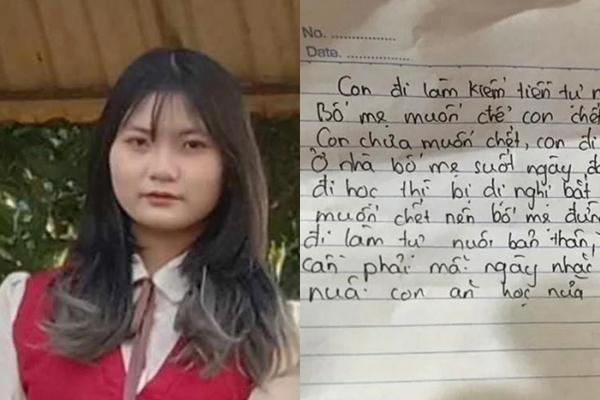 No. ................
Date. ................
Con đi làm kiếm tiền tự
Bố mẹ muốn chế con
Con chưa muốn chết, con đi
Ở nhà bố mẹ suốt ngày
đi học thì bị dị nghị bắt
muốn chết nên bố mẹ
đi làm tự nuôi bản thân,
cần phải mỗi ngày nhắc
nuôi con ăn học nữa